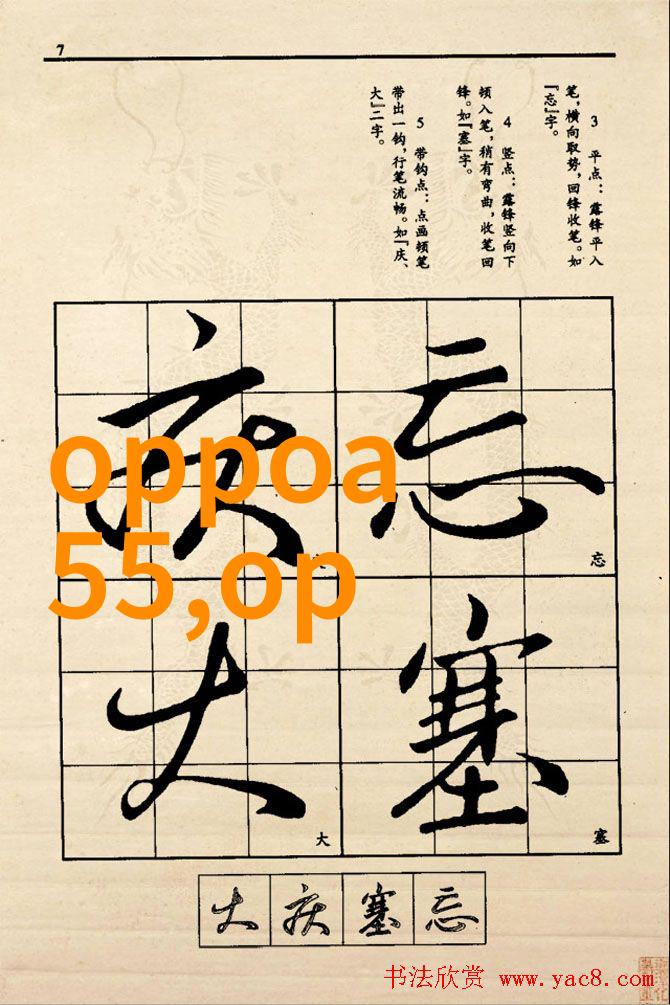 7
3 平点：露锋平入
笔，横向取势，回锋收笔。如
『忘』字。
4 竖点：露锋竖向下
顿入笔，稍有弯曲，收笔回
锋。如『塞』字。
5 带钩点：点画顿笔
带出一钩，行笔流畅。如『庆、
大』二字。
忘
忘
塞
塞
庆
大
大
oppoa
55,op
大 庆 塞 忘
书法欣赏 www.yac8.com